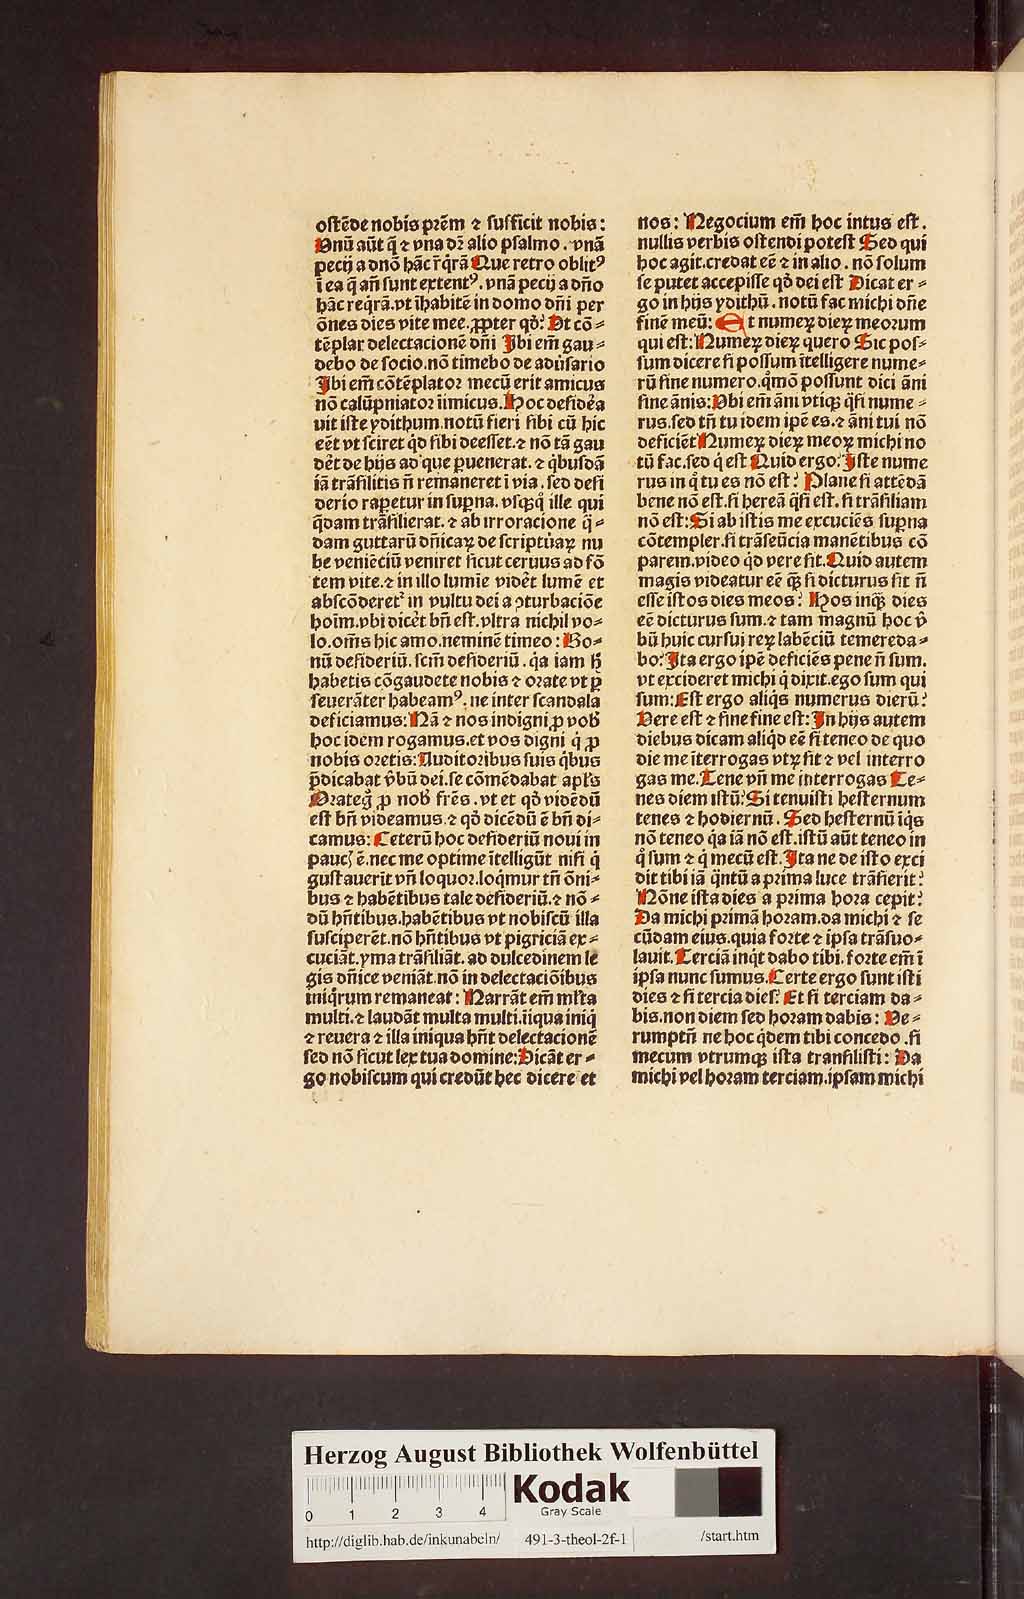 ostēde nobis prēm ⁊ sufficit nobis:
Vnū aūt q̄ ⁊ vna dꝫ alio psalmo. vnā
pecij a dnō hāc r̄q̄rā Que retro oblitꝰ
ī ea q̄ añ sunt extentꝰ. vnā pecij a dño
hāc reqr̄ā. vt īhabitē in domo dñi per
ōnes dies vite mee. ꝓpter qḋ: Vt cō-
tēplar delectacionē dñi Ibi em̄ gau-
debo de socio. nō timebo de adūsario
Ibi em̄ cōtēplator mecū erit amicus
nō calūpniator iimicus. Hoc desidēa
uit iste ydithum. notū fieri sibi cū hic
eēt vt sciret qd̄ sibi deesset. ⁊ nō tā gau
dēt de hijs ad que puenerat. ⁊ q̇busdā
iā trāsilitis ñ remaneret ī via. sed desi
derio rapetur in suꝑna. vsqꝫq̊ ille qui
q̄dam trāsilierat. ⁊ ab irroracione q̄-
dam guttarū dñicaꝝ de scriptūaꝝ nu
be veniēciū veniret sicut ceruus ad fō
tem vite. ⁊ in illo lumīe vidēt lumē et
abscōderet᷑ in vultu dei a ꝯturbaciōe
hoīm. vbi dicēt bñ est. vltra nichil vo-
lo. om̄s hic amo. neminē timeo: Bo-
nū desideriū. scm̄ desideriū. q̇a iam h̄
habetis cōgaudete nobis ⁊ orate vt ꝑ
seuerāter habeamꝰ. ne inter scandala
deficiamus: Nā ⁊ nos indigni ꝓ vob̄
hoc idem rogamus. et vos digni q̇ ꝓ
nobis oretis: Auditoribus suis q̇bus
p̄dicabat v̄bū dei. se cōmēdabat apl̄s
Orateq̄ ꝓ nob̄ frēs. vt et qḋ vidēdū
est bñ videamus. ⁊ qḋ dicēdū ē bñ di-
camus: Ceterū hoc desideriū noui in
paucꝭ ē. nec me optime ītelligūt nisi q̇
gustauerīt vñ loquor. loq̇mur tñ ōni-
bus ⁊ habētibus tale desideriū. ⁊ nō-
dū hñtibus. habētibus vt nobiscū illa
susciperēt. nō hñtibus vt pigriciā ex-
cuciāt. yma trāsiliāt. ad dulcedinem le
gis dñice veniāt. nō in delectaciōibus
iniq̇rum remaneat: Narrāt em̄ ml̄ta
multi. ⁊ laudāt multa multi. iiqua iniq̇
⁊ reuera ⁊ illa iniqua hñt delectacionē
sed nō sicut lex tua domine: Dicāt er-
go nobiscum qui credūt hec dicere et
nos: Negocium em̄ hoc intus est.
nullis verbis ostendi potest Sed qui
hoc agit. credat eē ⁊ in alio. nō solum
se putet accepisse qḋ dei est Dicat er-
go in hijs ydithū. notū fac michi dñe
finē meū: Et numeꝝ dieꝝ meorum
qui est: Numeꝝ dieꝝ quero Sic pos-
sum dicere si possum ītelligere nume-
rū sine numero. q̊mō possunt dici āni
sine ānis: Vbi em̄ āni vtiqꝫ q̄si nume-
rus. sed tñ tu idem ipē es. ⁊ āni tui nō
deficiēt Numeꝝ dieꝝ meoꝝ michi no
tū fac. sed q̇ est Quid ergo: Iste nume
rus in q̊ tu es nō est: Plane si attēdā
bene nō est. si hereā q̄si est. si trāsiliam
nō est: Si ab istis me excuciēs suꝑna
cōtempler. si trāseūcia manētibus cō
parem. video qd̄ vere sit. Quid autem
magis videatur eē qꝫ si dicturus sit ñ
esse istos dies meos: Hos inqꝫ dies
eē dicturus sum. ⁊ tam magnū hoc v̄
bū huic cursui reꝝ labēciū temere da-
bo: Ita ergo ipē deficiēs pene ñ sum.
vt excideret michi q̇ dixit. ego sum qui
sum: Est ergo aliq̇s numerus dierū:
Vere est ⁊ sine fine est: In hijs autem
diebus dicam aliq̇d eē si teneo de quo
die me īterrogas vtꝝ sit ⁊ vel interro
gas me. Tene vñ me interrogas Te-
nes diem istū: Si tenuisti hesternum
tenes ⁊ hodiernū. Sed hesternū īq̇s
nō teneo q̇a iā nō est. istū aūt teneo in
q̊ sum ⁊ q̇ mecū est. Ita ne de isto exci
dit tibi iā q̄ntū a prima luce trāsierit:
Nōne ista dies a prima hora cepit:
Da michi primā horam. da michi ⁊ se
cūdam eius. quia forte ⁊ ipsa trāsuo-
lauit. Terciā inq̇t dabo tibi. forte em̄ ī
ipsa nunc sumus. Certe ergo sunt isti
dies ⁊ si tercia dies: Et si terciam da-
bis. non diem sed horam dabis: Ve-
rumptñ ne hoc q̇dem tibi concedo. si
mecum vtrumqꝫ ista transilisti: Da
michi vel horam terciam. ipsam michi
Herzog August Bibliothek Wolfenbüttel
0 1 2 3 4
Kodak
Gray Scale
http://diglib.hab.de/inkunabeln/ 491-3-theol-2f-1 /start.htm